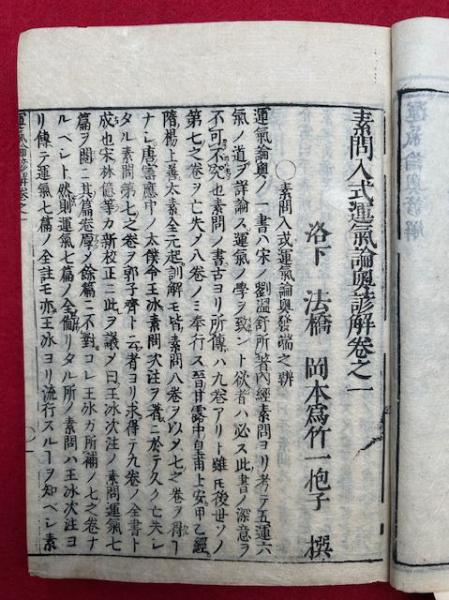 素問入式運氣論奥諺解卷之一
洛下 法橋 岡本爲竹一抱子 撰
○素問入式運氣論奥發端之辨
運氣論奥ノ一書ハ宋ノ劉温舒所著内經素問ヨリ考テ五運六
氣ノ道ヲ詳論ス運氣ノ學ヲ致ント欲者ハ必ス此書ノ深意ヲ
不可不究也素問ノ書古ヨリ所傳八九卷アリト雖氏後世ソノ
第七之卷ヲ亡失ノ八卷ノミ奉行ス晉甘露中皇甫士安甲乙經
隋楊上善太素全元起訓解モ皆素問八卷ヲ以メ七之卷ヲ得
ナシ唐寳應中ノ太僕令王冰素問次注ヲ著ニ於テ久ク亡失シ
タル素問第七之卷ヲ郭子齊ト云者ヨリ求得テ九卷ノ全書ト
成也宋林億等カ新校正ニ此ヲ議ノ曰王冰次注ノ素問運氣七
篇ヲ閲ニ其篇卷厚ノ餘篇ニ不對コレ王冰カ所補ノ七之卷ナ
ルベシト然則運氣七篇ノ全備リタル所ノ素問ハ王冰次注ヨ
リ傳テ運氣七篇ノ全註モ亦王冰ヨリ流行スル ヲ知ベシ素
運氣論諺解卷之一
運氣論奥諺解